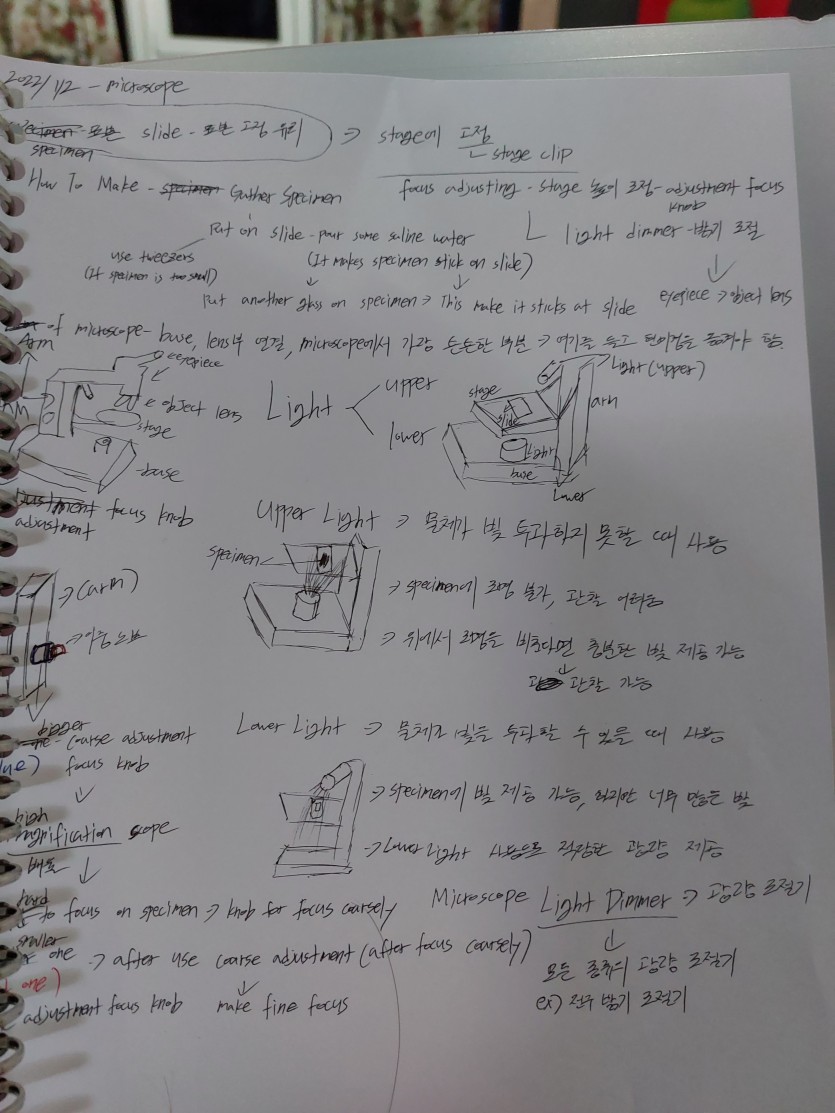 2022/1/2 - microscope
specimen - 표본 slide - 표본 고정 유리 → stage에 고정
specimen
stage clip
How To Make - specimen Gather Specimen
focus adjusting - stage 높이 조정 - adjustment focus knob
Put on slide - pour some saline water
light dimmer - 밝기 조절
use tweezers
(It makes specimen stick on slide)
(If specimen is too small)
Put another glass on specimen → This make it sticks at slide
eyepiece → object lens
Arm of microscope - base, lens부 연결, microscope에서 가장 튼튼한 부분 → 여기를 들고 현미경을 옮겨야 함.
eyepiece
object lens
stage
base
Light
upper
lower
Light (upper)
stage
slide
arm
Light
base
Lower
adjustment focus knob
adjustment
Upper Light → 물체가 빛 투과하지 못할 때 사용
specimen
→ specimen에 조명 불가, 관찰 어려움
→ (arm)
→ 위에서 조명을 비춘다면 충분한 빛 제공 가능
관찰 가능
bigger
one - coarse adjustment
focus knob
Lower Light → 물체가 빛을 투과할 수 있을 때 사용
→ specimen에 빛 제공 가능, 하지만 너무 많은 빛
high
magnification scope
→ Lower Light 사용으로 적당한 광량 제공
배율
hard
to focus on specimen → knob for focus coarsely
Microscope Light Dimmer → 광량 조절기
smaller
one → after use coarse adjustment (after focus coarsely)
모든 종류의 광량 조절기
one)
adjustment focus knob make fine focus
ex) 전구 밝기 조절기